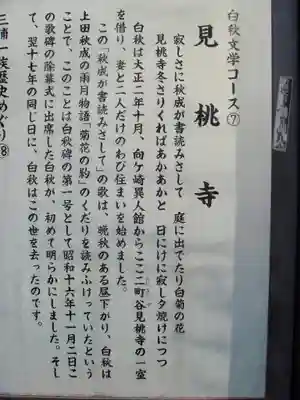 白秋文学コース⑦
見桃寺
寂しさに秋成が書読みさして 庭に出でたり白菊の花
見桃寺冬さりくればあかあかと 日にけに寂し夕焼けにつつ
白秋は大正二年十月、向ケ崎異人館からここ二町谷見桃寺の一室
を借り、妻と二人だけのわび住まいを始めました。
この「秋成が書読みさして」の歌は、晩秋のある昼下がり、白秋は
上田秋成の雨月物語「菊花の契」のくだりを読みふけっていたという
ことで、このことは白秋碑の第一号として昭和十六年十一月二日こ
の歌碑の除幕式に出席した白秋が、初めて明らかにしました。そし
て、翌十七年の同じ日に、白秋はこの世を去ったのです。
三浦一族歴史めぐり⑧